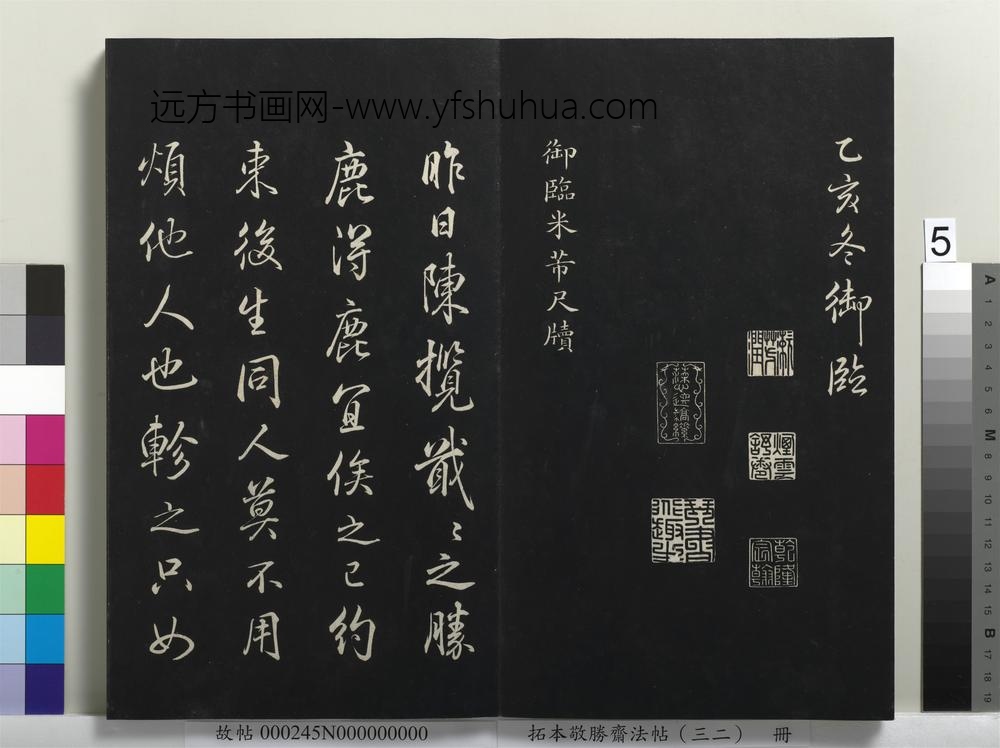 远方书画网-www.yfshuhua.com
乙亥冬御臨
煙雲舒卷
乾隆宸翰
御臨米芾尺牘
昨日陳攬戢〻之勝
鹿得鹿宜俟之已約
束後生同人莫不用
煩他人也軫之只如
5
A 1 2 3 4 5 6 M 8 9 10 11 12 13 14 15 B 17 18 19
故帖 000245N000000000
拓本敬勝齋法帖（三二） 冊